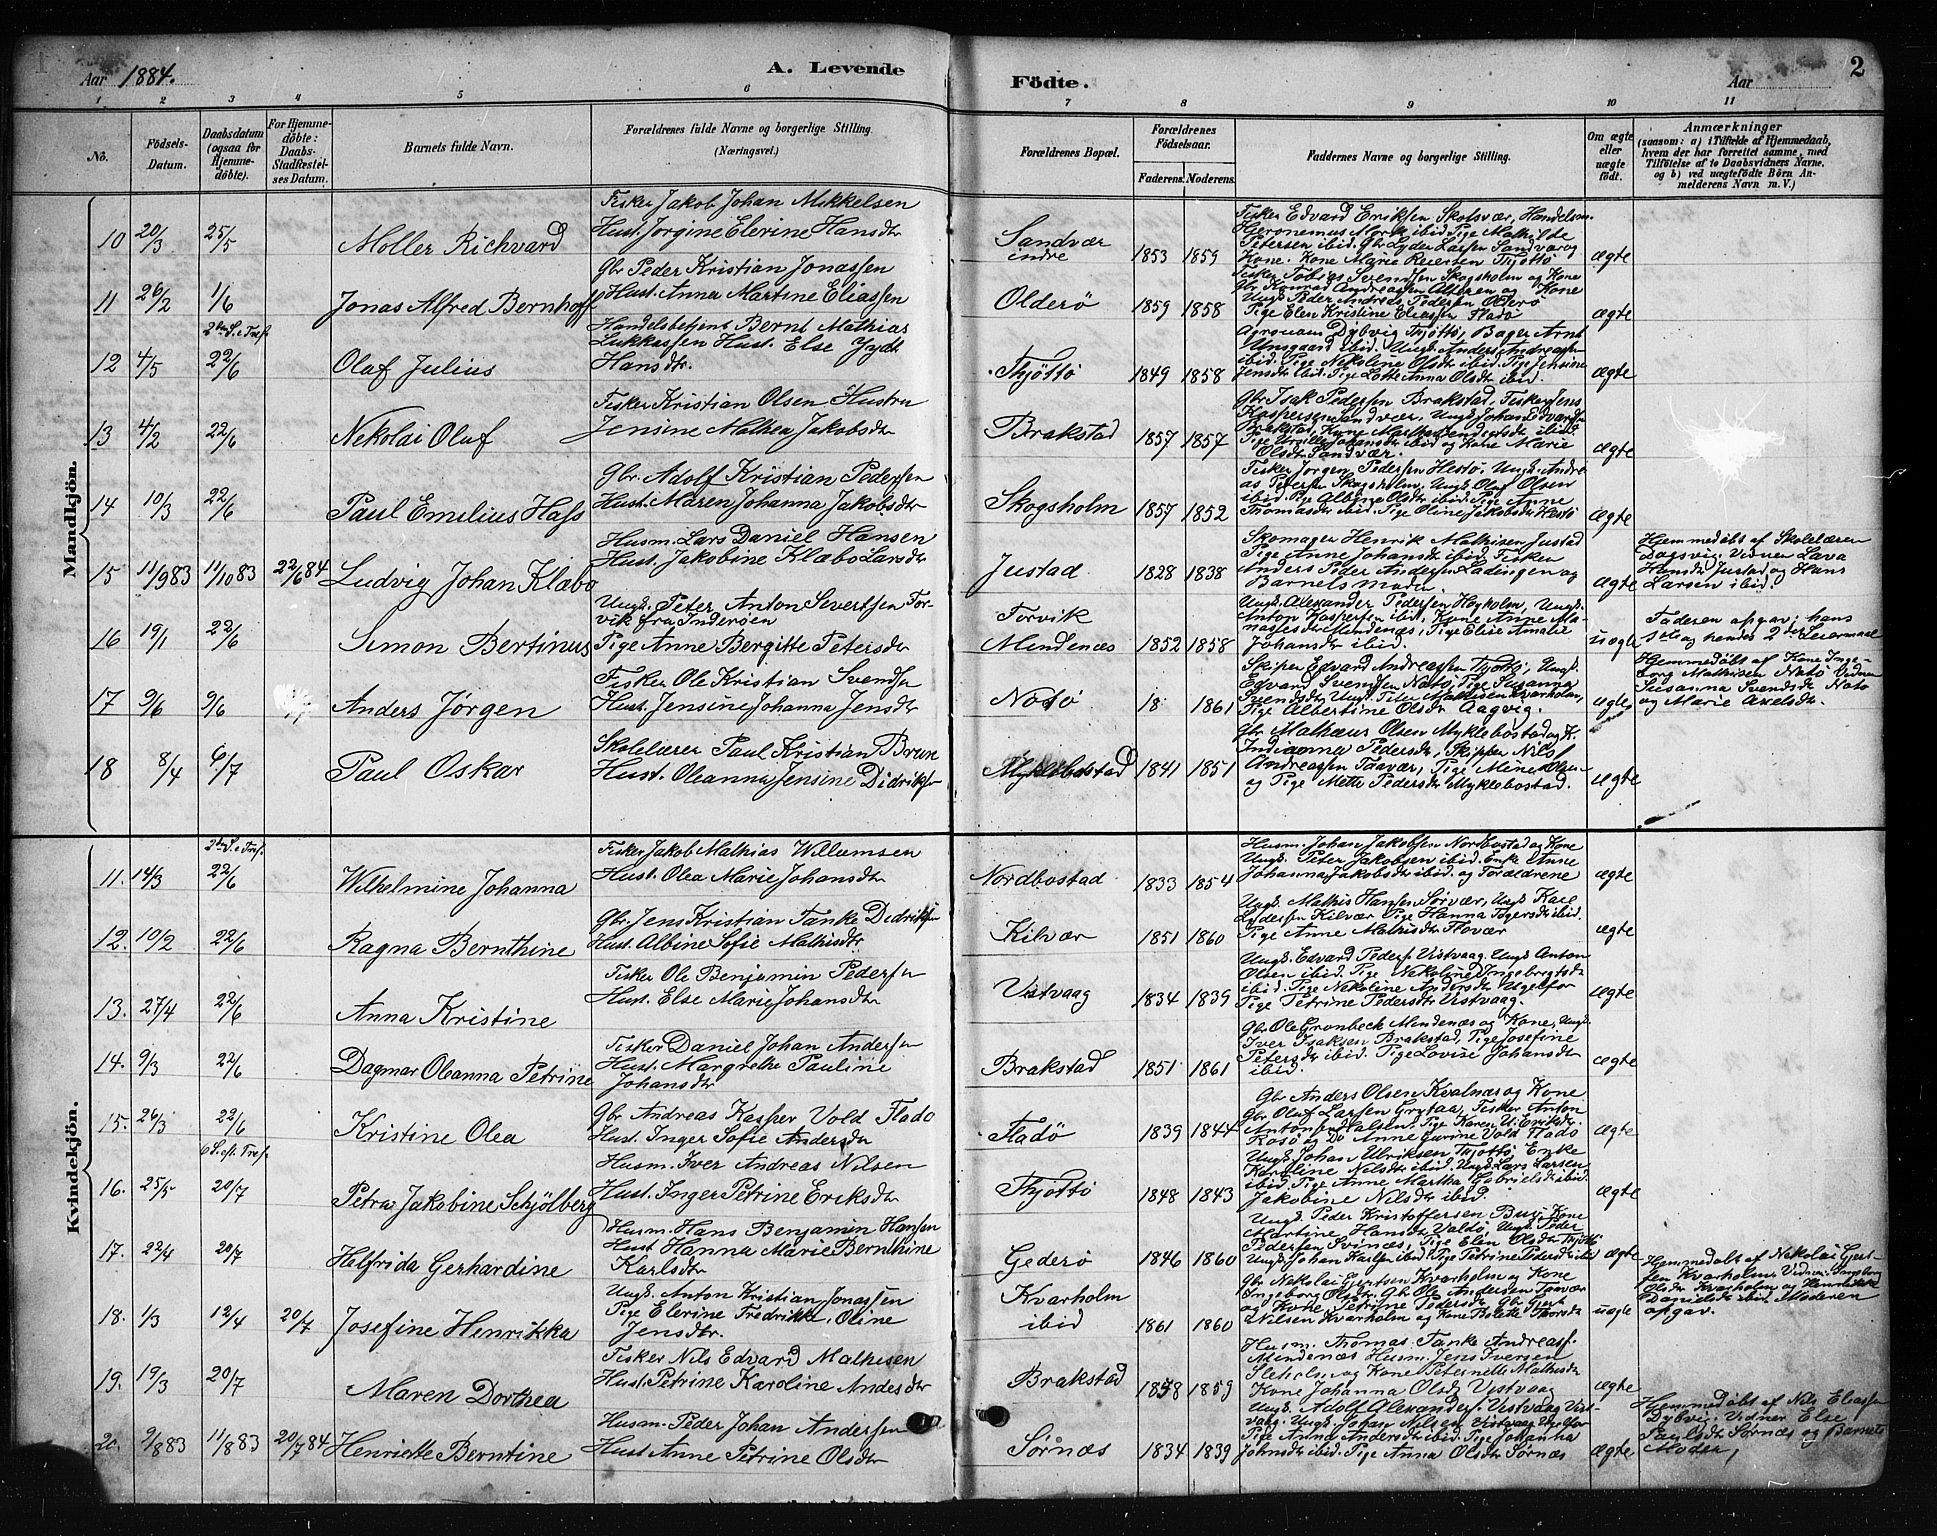 Aar 1884.
A. Levende
Födte.
Aar
2
1 2 3 4 5 6 7 8 9 10 11
No.
Födsels-Datum.
Daabsdatum (ogsaa for Hjemme-döbte).
For Hjemme-döbte: Daabs-Stadfæstel-ses Datum.
Barnets fulde Navn.
Forældrenes fulde Navne og borgerlige Stilling.
(Næringsvei.)
Forældrenes Bopæl.
Forældrenes Födselsaar.
Faderens. Moderens.
Faddernes Navne og borgerlige Stilling.
Om ægte eller uægte födt.
Anmærkninger
(saasom: a) i Tilfælde af Hjemmedaab,
hvem der har forrettet samme, med
Tilföielse af to Daabsvidners Navne,
og b) ved uægtefödte Börn An-
melderens Navn m. V.)
Mandkjön.
Fisker Jakob Johan Mikkelsen
10 20/3 25/5 Møller Richvard Hust. Jørgine Elerine Hansdtr
Sandvær indre 1853 1859
Fisker Edvard Eriksen Skotsvær, Handelsm.
Hieronemus Mork ibid. Pige Mathilde
Petersen ibid. Gbr Lyder Larsen Sandvær og
Kone. Kone Marie Reiersen Thjøttø ægte
Gbr Peder Kristian Jonassen
11 26/2 1/6 Jonas Alfred Bernhoff Hust. Anna Martine Eliassen
Olderø 1859 1858
Fisker Tobias Svendsen Skogsholm og Kone
Gbr Konrad Andreasen Alteren og Kone
Ungk. Peder Andreas Pedersen Olderø
Pige Elen Kristine Eliassen Fladø ægte
2den S. e. Tref.
Handelsbetjent Bernt Mathias
Lukkassen Hust. Else Jydt
12 4/5 22/6 Olaf Julius Hansdtr.
Thjøttø 1849 1858
Dybvig Thjøttø, Bager Arnt
ibid. Ungk. Anders Andreassen
ibid. Pige Nekoline Olsdtr ibid. Pige Jensine
Jensdtr ibid. Pige Lotte Anna Olsdtr ibid. ægte
Fisker Kristian Olsen Hustru
13 4/2 22/6 Nekolai Oluf Jensine Mathea Jakobsdtr
Brakstad 1857 1857
Gbr Isak Pedersen Brakstad, Fisker Jens
Kaspersen Sandvær, Ungk. Johan Edvardsen
Brakstad, Kone Martha ibid.
Pige Johansdtr ibid og Kone Marie
Olsdtr Sandvær. ægte
Gbr. Adolf Kristian Pedersen
14 10/3 22/6 Paul Emilius Hass Hust. Maren Johanna Jakobsdtr
Skogsholm 1857 1852
Fisker Jørgen Pedersen Hestø. Ungk. Andre-
as Petersen Skogsholm. Ungk. Oluf Olsen
ibid. Pige Albine Olsdtr ibid. Pige Anne
Thomasdtr ibid. Pige Oline Jakobsdtr Hestø ægte
Husm. Lars Daniel Hansen
15 11/9 83 11/10 83 22/6 84 Ludvig Johan Klæbo Hust. Jakobine Klæbo Larsdtr
Justad 1828 1838
Skomager Henrik Mathisen Justad
Pige Anne Johansdtr ibid. Fisker
Anders Peder Andersen Ladingen og
Barnets moder ægte
Hjemmedøbt af Skolelæren
Dagsvig. Vidner Lava
Hansdtr Justad og Hans
Larsen ibid.
Ungk. Peter Anton Severtsen For-
vik fra Inderøen
16 19/1 22/6 Simon Bertinus Pige Anne Bergitte Petersdtr
Forvik
Mindenæs 1852 1858
Ungk. Alexander Pedersen Høyholm, Ungk.
Anton Kaspersen ibid, Kone Anne Ma-
Mindenæs, Pige Elise Amalie
Johansdtr ibid. uægte
Faderen opgav; hans
1ste og hendes 2det Leiermaal
Fisker Ole Kristian Svendsen
17 9/6 9/6 Anders Jørgen Hust. Jensine Johanna Jensdtr
Notø 18 1861
Skiper Edvard Andreassen Thjøttø, Ungk.
Edvard Svendsen Notø, Pige Susanna
Svendsdtr Ungk. Mathisen Kvarholm,
Pige Albertine Olsdtr Aagvig. ægte
Hjemmedøbt af Kone Inge-
borg Mathisen Notø Vidner
Susanna Svendsdtr Notø
og Marie Axelsdtr.
Skolelærer Paul Kristian Brun
18 8/4 6/7 Paul Oskar Hust. Oleanna Jensine Didriksen
Myklebostad 1841 1851
Gbr Mathæus Olsen Myklebostad og K.
Indianna Pedersdtr, Skipper Nils
Andreassen Taavær, Pige Mine Olsen
og Pige Mette Pedersdtr Myklebostad. ægte
Kvindekjön.
2den S. e. Tref.
Fisker Jakob Mathias Willumsen
11. 14/3 22/6 Wilhelmine Johanna Hust. Olea Marie Johansdtr
Nordbostad 1833 1854
Husm. Johan Jakobsen Nordbostad og Kone
Ungk. Peter Jakobsen ibid. Enke Anne
Johanna Jakobsdtr ibid. og Forældrene ægte
Gbr. Jens Kristian Tanke Didriksen
12. 10/2 22/6 Ragna Bernthine Hust. Albine Sofie Mathisdtr
Kilvær 1851 1860
Ungk. Mathis Hansen Sørvær, Ungk. Kael
Lydersen Kilvær Pige Hanna Tøgersdtr ibid.
Pige Anne Mathisdtr Flovær ægte
Fisker Ole Benjamin Pedersen
13. 27/4 22/6 Anna Kristine Hust. Else Marie Johansdtr
Vistvaag 1834 1839
Ungk. Edvard Peders. Vistvaag. Ungk Anton
Olsen ibid. Pige Nekoline Ingebregtsdtr
ibid. Pige Nekoline Andersdtr Ugelfor
Pige Petrine Pedersdtr Vistvaag. ægte
Fisker Daniel Johan Andersen
14. 9/3 22/6 Dagmar Oleanna Petrine Hust. Margrethe Pauline
Johansdtr
Brakstad 1851 1861
Gbr Ole Grønbeck Mindenæs og Kone, Ungk.
Iver Isaksen Brakstad, Pige Josefine
Petersdtr ibid. Pige Lovise Johansdtr
ibid. ægte
15. 26/3 22/6 Kristine Olea
Gbr Andreas Kasper Vold Flado
Hust. Inger Sofie Andersdtr
Fladø 1839 1844
Gbr Anders Olsen Kvalnæs og Kone
Gbr Oluf Larsen Grytaa, Fisker Anton
Antonsen Pige Karen U. Eriksdtr
Rosø og Do Anne Gurine Vold Fladø ægte
6 S. eft. Tref.
Husm. Iver Andreas Nilsen
16. 25/5 20/7 Petra Jakobine Schjølberg Hust. Inger Petrine Eriksdtr
Thjøttø 1848 1843
Ungk. Johan Ulriksen Thjøttø, Enke
Karoline Nilsdtr ibid. Ungk. Lars Larsen
ibid. Pige Anne Martha Gabrielsdtr ibid.
Jakobine Nilsdtr ibid. ægte
Husm. Hans Benjamin Hansen
Hust. Hanna Marie Bernthine
17. 22/4 20/7 Helfrida Gerhardine Karlsdtr
Gederø 1846 1860
Ungk. Peder Kristoffersen Buø, Kone
Martine Hansdtr Valdø, Ungk. Peder
Pedersen Svinæs, Pige Elen Olsdtr Thjøttø
Ungk. Johan Karlsen ibid. Pige Petrine Pedersdtr ibid ægte
Ungk. Anton Kristian Jonassen
Pige Elerine Fredrikke Oline
18. 1/3 12/4 20/7 Josefine Henrikka Jensdtr.
Kvarholm
ibid 1861 1860
Gbr Nekolai Gjertsen Kvarholm og Kone
Ingeborg Olsdtr. Gbr Ole Andersen Taavær
og Kone Petrine Pedersdtr Gbr Gjert
Nilsen Kvarholm og Kone Bolette Thorsdtr uægte
Hjemmedøbt af Nekolai Gjert-
sen Kvarholm Vidner: Ingeborg
Olsdtr Kvarholm og Henrikke
Danielsdtr ibid. Moderen
opgav.
Fisker Nils Edvard Mathisen
19. 19/3 20/7 Maren Dorthea Hust. Petrine Karoline Andesdtr
Brakstad 1858 1859
Husm. Thomas Tanke Andreass.
Mindenæs Husm. Jens Iversen
og Kone Peternette Mathisdtr
Kone Johanna Olsdtr Vistvaag ægte
Husm. Peder Johan Andersen
20. 9/8 83 11/8 83 20/7 84 Henriette Berntine Hust Anne Petrine Olsdtr
Sørnæs 1834 1839
Ungk. Adolf Alexanders. Vistvaag Vist-
vaag. Ungk. Johan Nilsen Vistvaag Ugelfor
Pige Anna Andersdtr ibid. Pige Johanna
Johnsdtr ibid. Pige Anna Olsdtr Sørnæs ægte
Hjemmedøbt af Nils Eliassen
Dybvig. Vidner Else
Paulsdtr Sørnæs og Barnets
Moder,